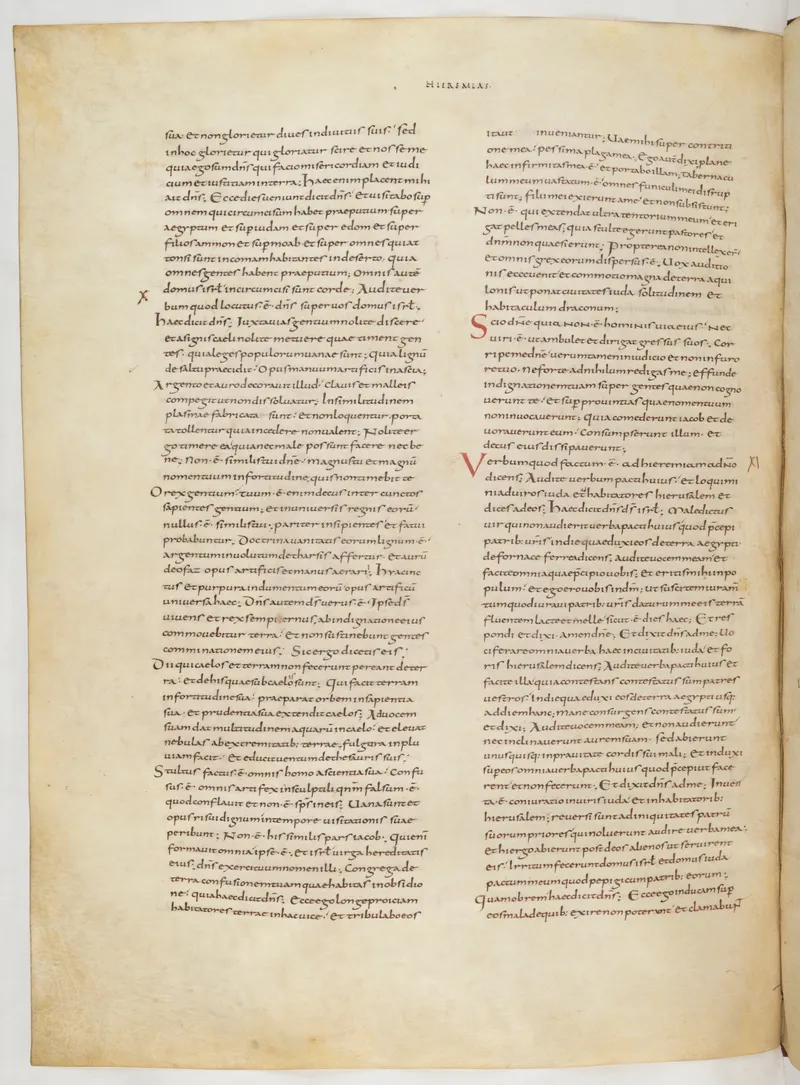 HIEREMIAS·
sua· Et non glorietur diues in diuitiis suis·' sed
in hoc glorietur qui gloriatur scire et nosse me
quia ego sum dns qui facio misericordiam et iudi
cium et iustitiam in terra; Haec enim placent mihi
ait dns; Ecce dies ueniunt dicit dns· Et uisitabo sup
omnem qui circumcisum habet praeputium super
aegyptum et sup iudam et super edom et super
filios ammon et sup moab et super omnes qui at
tonsi sunt in comam habitantes in deserto· quia
omnes gentes habent praeputium; Omnis autē
domus isrt incircumcisi sunt corde; Audite uer
X
bum quod locutus·ē· dns super uos domus isrt·,
Haec dicit dns; Iuxta uias gentium nolite discere·
et a signis caeli nolite metuere quae timent gen
tes; quia leges populorum uanae sunt; quia lignū
de saltu praecidit·' Opus manuum artificis in ascia;
Argento et auro decorauit illud·' clauis et malleis
compegit ut non dissoluatur; In similitudinem
palmae fabricata sunt· et non loquentur· porta
ta tollentur quia incedere non ualent; Nolite er
go timere ea quia nec male possunt facere nec be
ne; Non·ē· similis tui dne· magnus tu et magnū
nomen tuum in fortitudine; quis non timebit te
O rex gentium· tuum·ē· enim decus inter cunctos
sapientes gentium; et in uniuersis regnis eorū
nullus·ē· similis tui·, pariter insipientes et fatui
probabuntur; Doctrina uanitatis eorum lignum·ē·
argentum inuolutum de tharsis affertur· et aurū
de ofaz· opus artificis et manus aerarii; Hyacinc
tus et purpura indumentum eorū· opus artificū
uniuersa haec; Dns autem ds uerus·ē· Ipse ds
uiuens et rex sempiternus; ab indignatione eius
commouebitur terra·' et non sustinebunt gentes
comminationem eius; Sic ergo dicetis eis;
Dii qui caelos et terram non fecerunt pereant de ter
ra· et de his quae sub caelo sunt; Qui facit terram
in fortitudine sua· praeparat orbem in sapientia
sua· et prudentia sua extendit caelos; Ad uocem
suam dat multitudinem aquarum in caelo·' et eleuat
nebulas ab extremitatib; terrae·, fulgura in plu
uiam facit· et educit uentum de thesauris suis;
Stultus factus·ē· omnis homo a scientia sua·' Confu
sus·ē· omnis artifex in sculptili· qnm falsum·ē·
quod conflauit et non·ē· sps in eis; Uana sunt et
opus risu dignum in tempore uisitationis suae
peribunt; Non·ē· his similis pars iacob·, qui enī
formauit omnia ipse·ē·, et isrt uirga hereditatis
eius; dns exercituum nomen illi; Congrega de
terra confusionem tuam quae habitas in obsidio
ne·' quia haec dicit dns; Ecce ego longe proiciam
habitatores terrae in hac uice·' et tribulabo eos
ita ut inueniantur; Uae mihi super contriti
one mea·' pessima plaga mea·, Ego autē dixi plane
haec infirmitas mea·ē· et portabo illam; tabernacu
lum meum uastatum·ē· omnes funiculi mei disrup
ti sunt; filii mei exierunt a me·' et non subsistunt;
Non·ē· qui extendat ultra tentorium meum et eri
gat pelles meas; quia stulte egerunt pastores et
dnm non quaesierunt; Propterea non intellexer·'
et omnis grex eorum dispersus·ē·, Uox auditio
nis ecce uenit et commotio magna de terra aqui
lonis ut ponat ciuitates iuda solitudinem et
habitaculum draconum;
Scio dne quia non·ē· hominis uia eius·' Nec
uiri·ē· ut ambulet et dirigat gressus suos·, Cor
ripe me dne· uerumtamen in iudicio et non in furo
re tuo· ne forte ad nihilum redigas me; effunde
indignationem tuam super gentes quae non cogno
uerunt te·' et sup prouintias quae nomen tuum
non inuocauerunt; quia comederunt iacob et de
uorauerunt eum·' Consumpserunt illum· et
decus eius dissipauerunt;
Verbum quod factum·ē· ad hieremiam a dno XI
dicens; Audite uerba pacti huius·' et loquimi
ni ad uiros iuda et ad habitatores hierusalem et
dices ad eos; Haec dicit dns ds isrt·, Maledictus
uir qui non audierit uerba pacti huius quod pcepi
patrib: uris in die qua eduxi eos de terra aegypti
de fornace ferrea dicens; Audite uocem meam et
facite omnia quae pcipio uobis; et eritis mihi in po
pulum· et ego ero uobis in dm; ut suscitem iuram
tum quod iuraui patrib: uris daturum me eis terrā
fluentem lacte et melle· sicut·ē· dies haec; Et res
pondi et dixi· Amen dne; Et dixit dns ad me; Uo
ciferare omnia uerba haec in ciuitatib: iuda· et fo
ris hierusalem dicens; Audite uerba pacti huius et
facite illa· quia contestans contestatus sum patres
uestros·' in die qua eduxi eos de terra aegypti usq:
ad diem hanc; mane consurgens contestatus sum·
et dixi; Audite uocem meam; et non audierunt·'
nec inclinauerunt aurem suam· sed abierunt
unusquisq: in prauitate cordis sui mali; et induxi
sup eos omnia uerba pacti huius quod pcepi ut face
rent et non fecerunt·, Et dixit dns ad me; Inuen
ta·ē· coniuratio in uiris iuda· et in habitatorib:
hierusalem; reuersi sunt ad iniquitates patrū
suorum priores qui noluerunt audire uerba mea·,
Et hi ergo abierunt post deos alienos ut seruirent
eis·' Irritum fecerunt domus isrt et domus iuda
pactum meum quod pepigi cum patrib: eorum;
Quam ob rem haec dicit dns; Ecce ego inducam sup
eos mala de quib: exire non poterunt·' et clamabunt